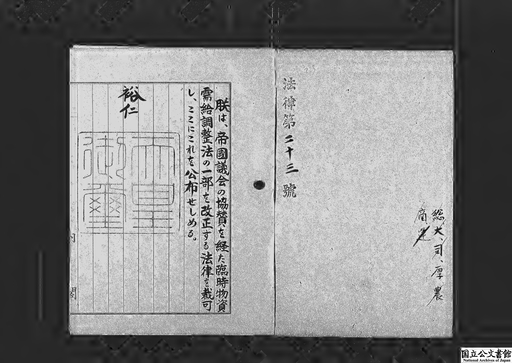 総、大、司、厚、農
商、
法律第二十三號
朕は、帝國議会の協賛を経た臨時物資
需給調整法の一部を改正する法律を裁可
し、ここにこれを公布せしめる。
裕仁
天皇
御璽
内閣
国立公文書館
National Archives of Japan